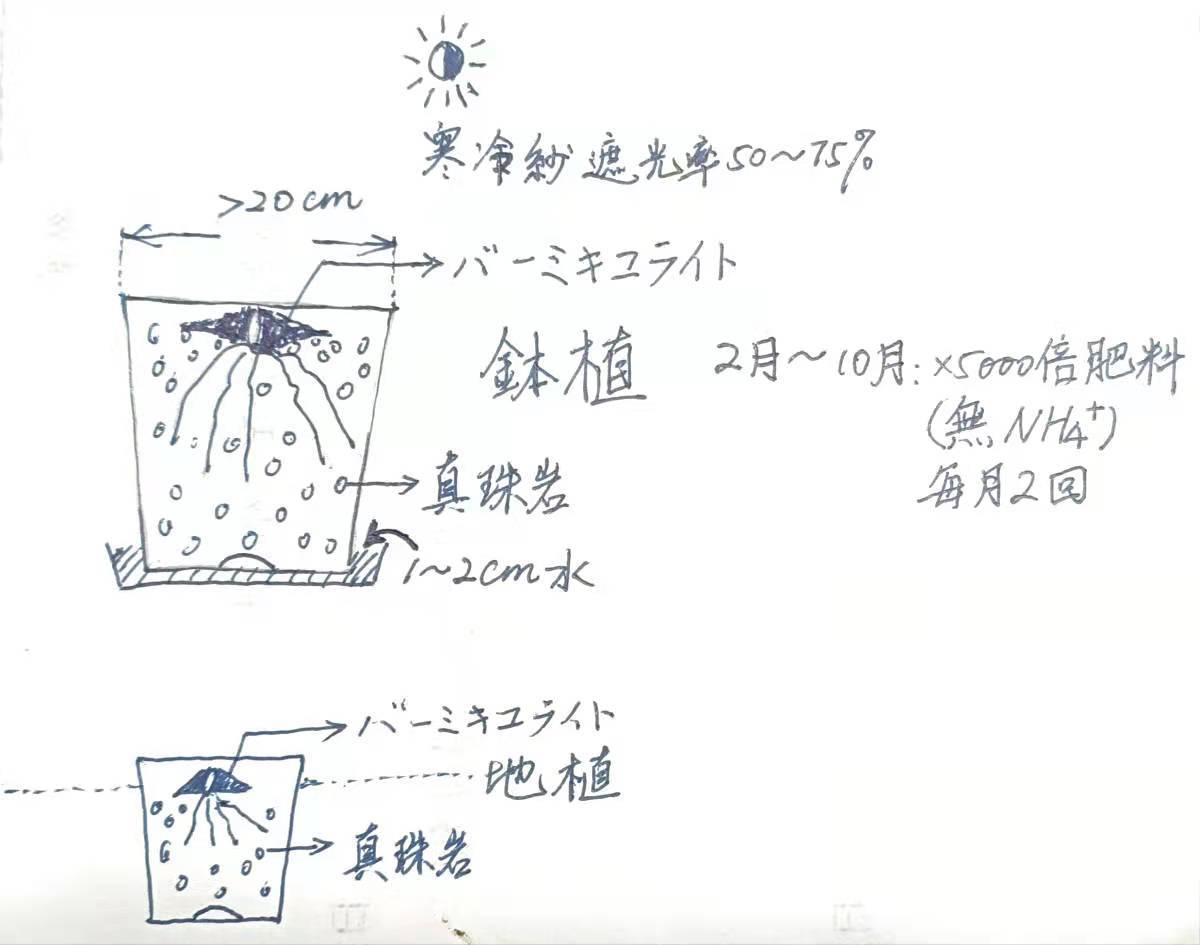 寒冷紗遮光率50～75%
>20cm
バーミキュライト
鉢植
2月～10月:×5000倍肥料
(無NH4+)
毎月2回
真珠岩
1～2cm水
バーミキュライト
地植
真珠岩